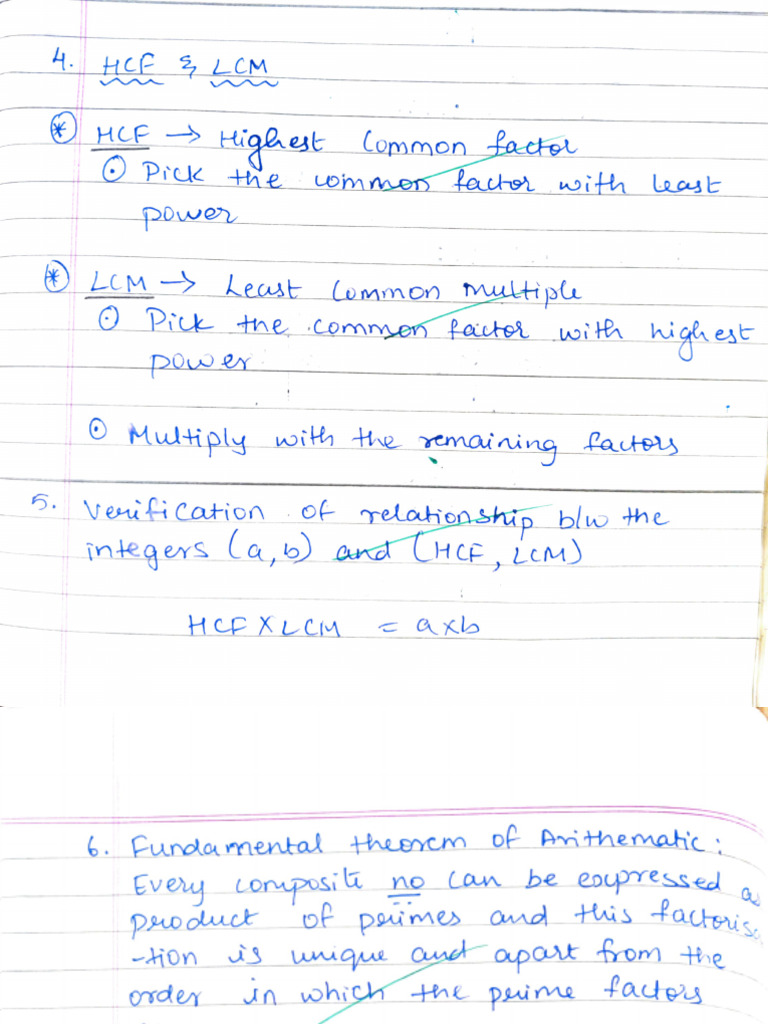 4. HCF & LCM
* HCF → Highest Common factor
⊙ Pick the common factor with least
power
* LCM → Least Common Multiple
⊙ Pick the common factor with highest
power
⊙ Multiply with the remaining factors
5. Verification of relationship b/w the
integers (a,b) and (HCF, LCM)
HCF X LCM = a x b
6. Fundamental theorem of Arithematic:
Every composite no can be expressed as
product of primes and this factoris
-tion is unique and apart from the
order in which the prime factors